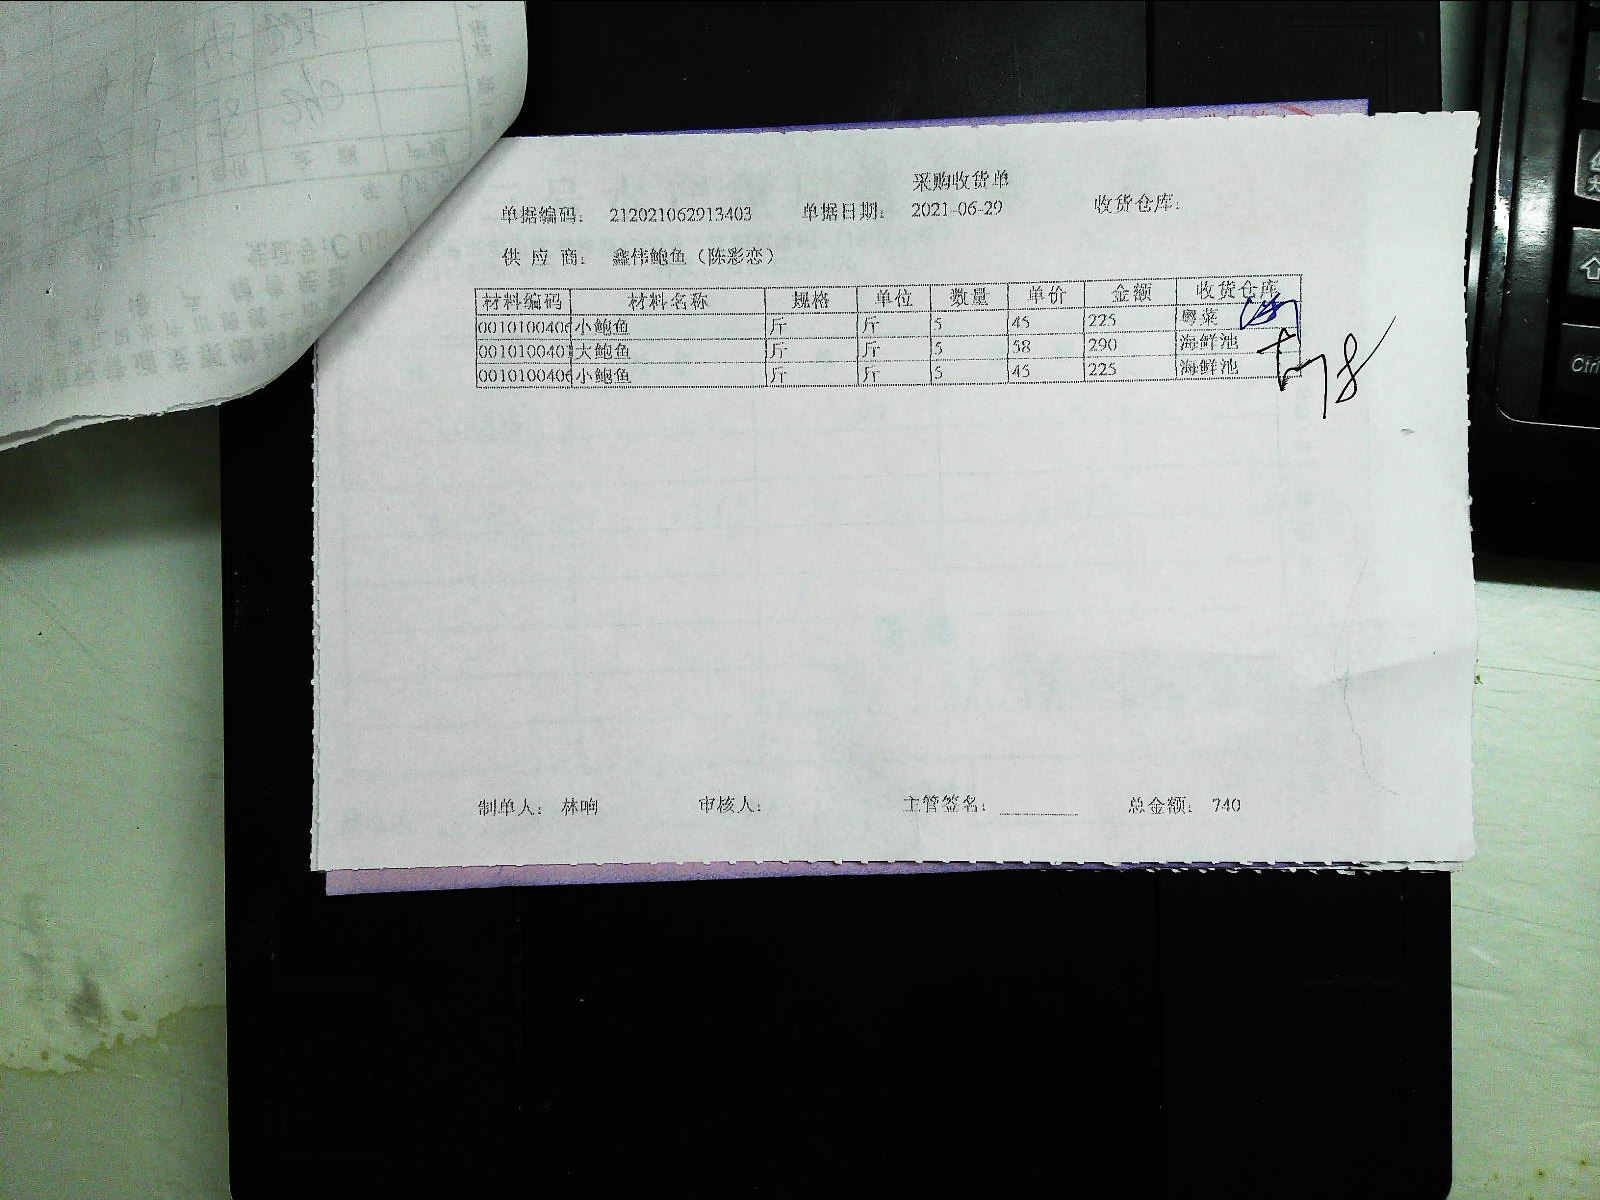 采购收货单
单据编码： 212021062913403 单据日期： 2021-06-29 收货仓库：
供 应 商： 鑫伟鲍鱼（陈彩恋）
材料编码 材料名称 规格 单位 数量 单价 金额 收货仓库
0010100406 小鲍鱼 斤 斤 5 45 225 粤菜
001010040 大鲍鱼 斤 斤 5 58 290 海鲜池
0010100406 小鲍鱼 斤 斤 5 45 225 海鲜池
制单人： 林晌 审核人： 主管签名： 总金额： 740
Ctrl